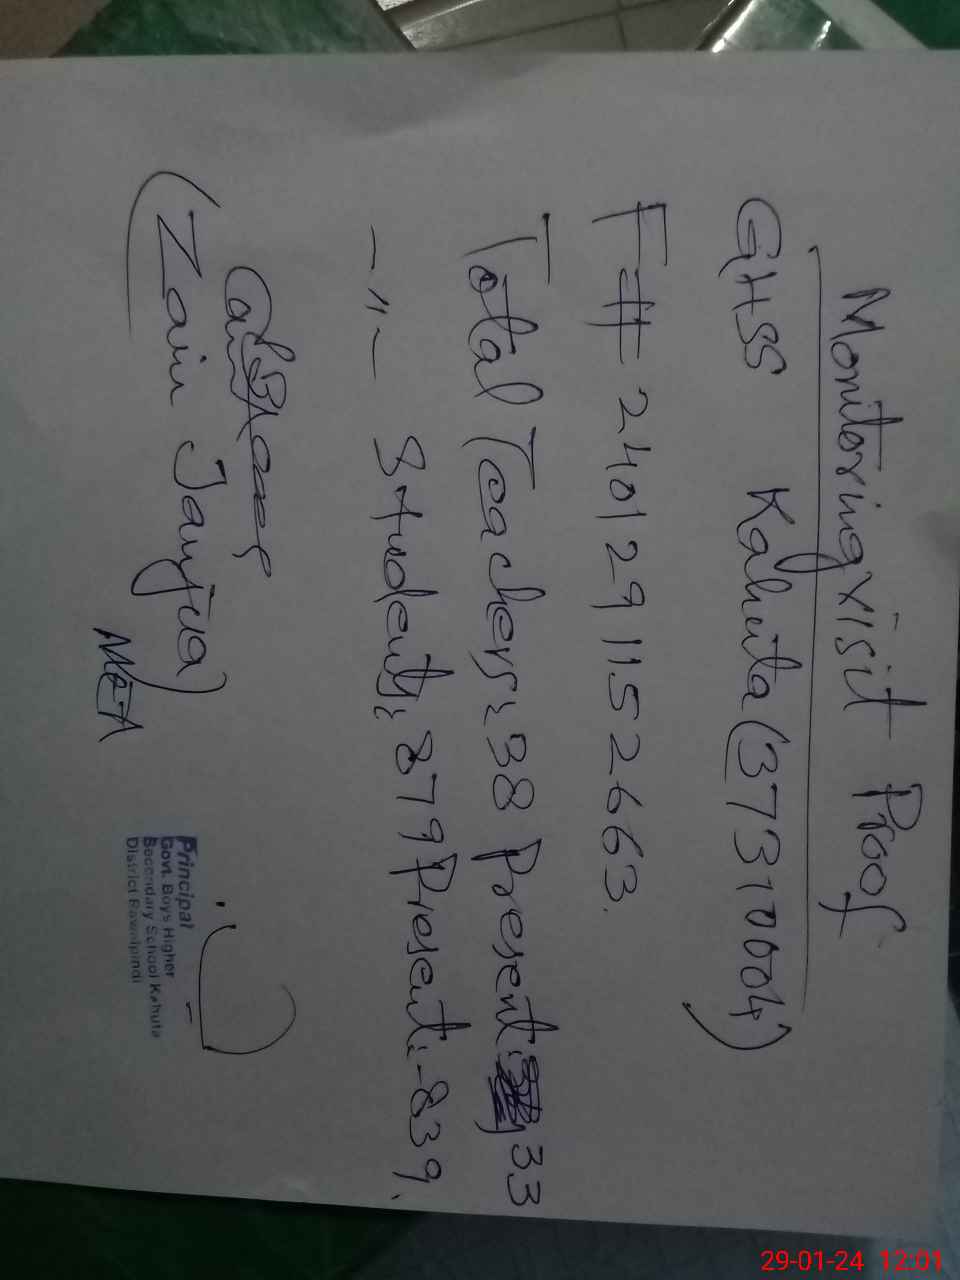 Monitoring visit Proof
GHSS Kahuta (37310004)
F# 2401291152663.
Total Teachers: 38 Present: 33
-"- Students: 879 Present:-839.
(Zain Janjua)
MEA
Principal
Govt. Boys Higher
Secondary School Kahuta
District Rawalpindi
29-01-24 12:01